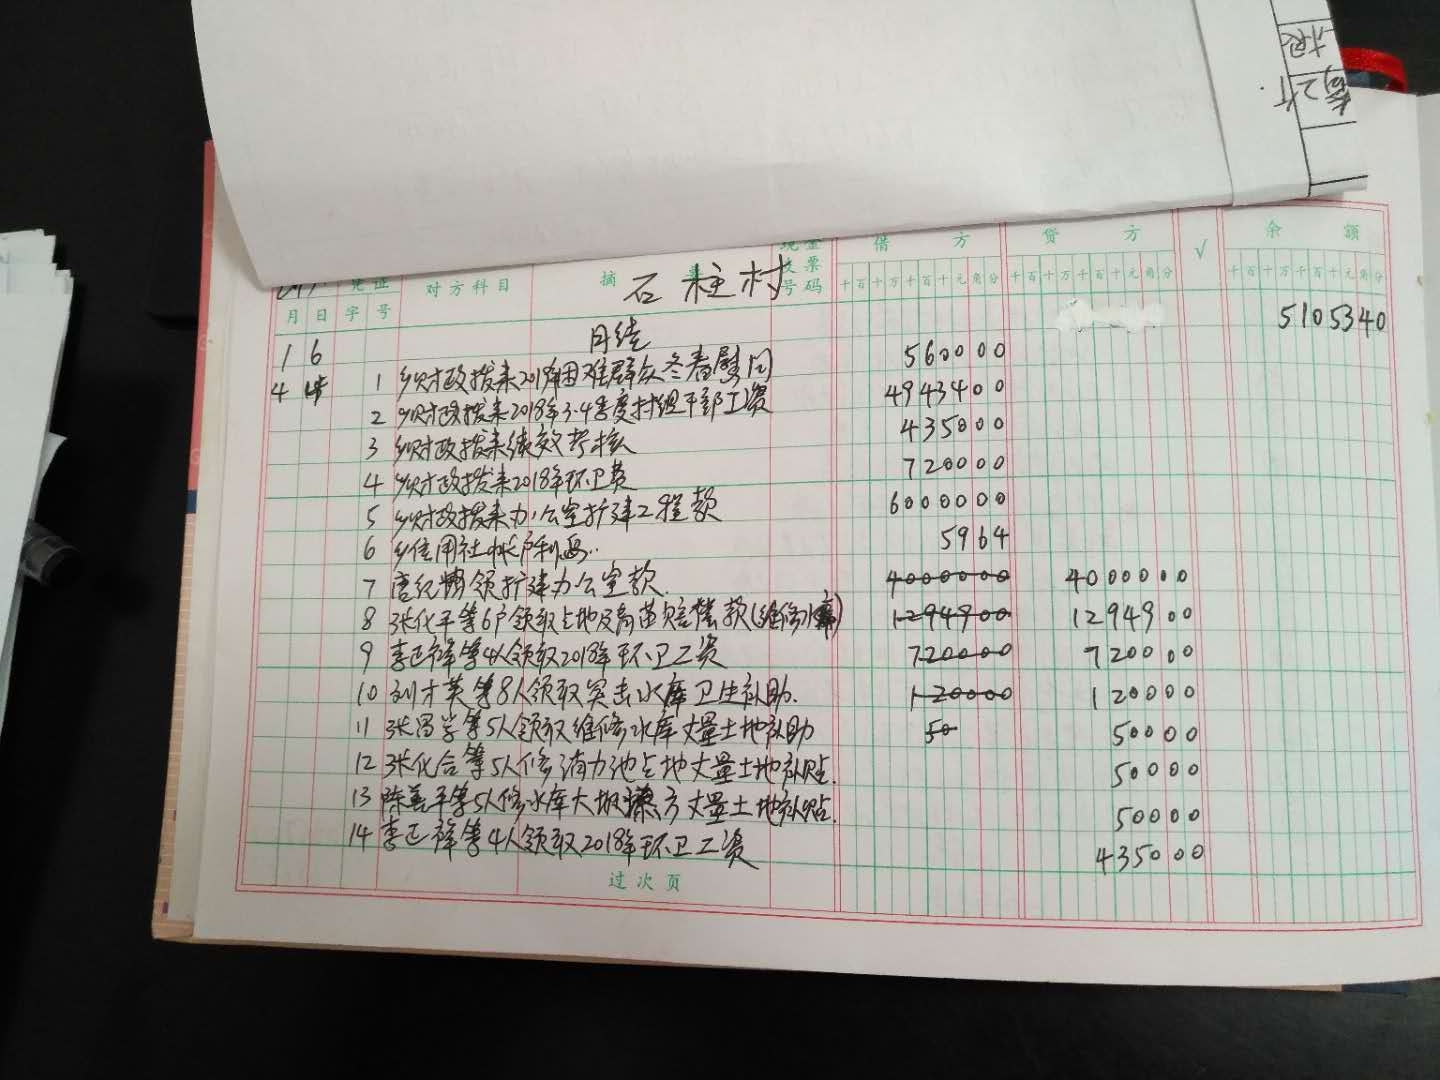 石柱村
月 日 凭证 字 号 对方科目 摘 要 借 方 贷 方 √ 余 额
千百十万千百十元角分 千百十万千百十元角分 千百十万千百十元角分
1 6 月结 5105340
4 4 1 乡财政拨来2018年困难群众冬春慰问 560000
2 乡财政拨来2018年3.4季度村组干部工资 4943400
3 乡财政拨来绩效考核 435000
4 乡财政拨来2018年环卫费 720000
5 乡财政拨来办公室扩建工程款 6000000
6 乡信用社帐户利息.. 5964
7 唐纪 领扩建办公室款. 4000000 4000000
8 张化平等6户领取占地及青苗赔偿款(维修水库) 1294900 1294900
9 李正祥等4人领取2018年环卫工资 720000 720000
10 刘才英等8人领取突击水库卫生补助. 120000 120000
11 张昌学等5人领取维修水库丈量土地补助 50 50000
12 张化合等5人修消力池占地丈量土地补贴. 50000
13 陈善平等5人修水库大坝 方丈量土地补贴. 50000
14 李正祥等4人领取2018年环卫工资 435000
过次页